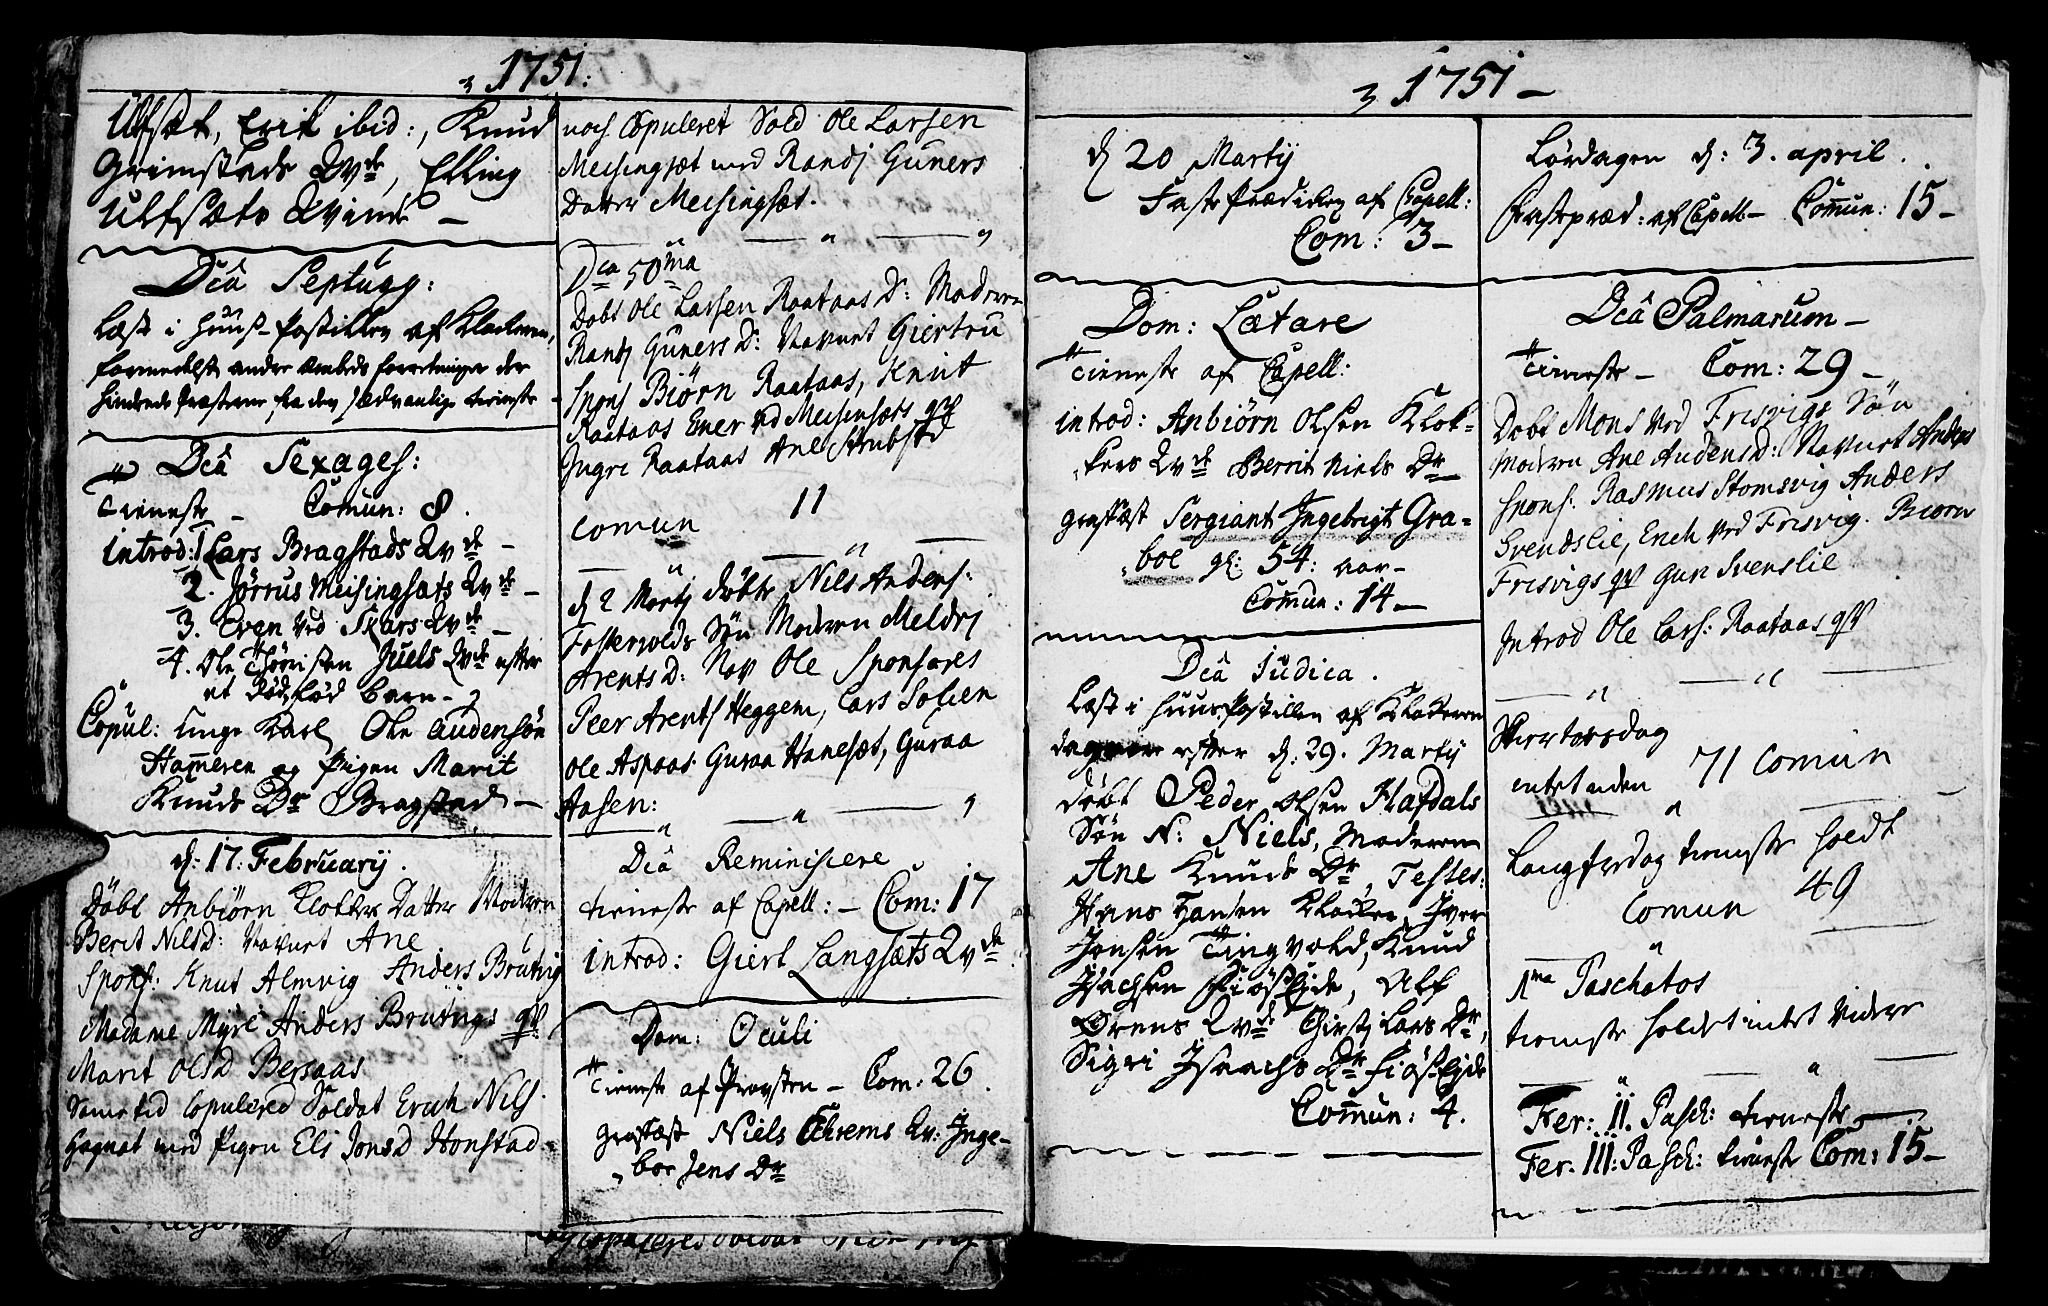 1751:
Ulfsæt, Erik ibid:, Knud
Grimstads Qvde, Elling
Ulfsæts Qvinde –
Dca Septuag:
Læst i Huus-Postillen af Klockeren,
formedelst andre Embeds forretninger der
hindrede Præsterne fra den sædvanlige tieneste
Dca Sexages:
Tieneste – Comun: 8.
introd: 1 Lars Bragstads Qvde –
2. Jörrus Meisingsæts Qvde –
3. Even ved Skars Qvde –
4. Ole Thörrisen Juels Qvde efter
et dödföd barn –
Copul: unge Karl Ole Audensön
Hammeren og Pigen Marit
Knuds Dr Bragstad –
d: 17. Februarij.
Döbt Anbiörn Klokkers Datter Moderen
Berit Nilsd: Navnet Ane
Spons: Knut Almvig Anders Brutvig
Madame Myre Anders Brutvigs qv:
Marit Olsd Bersaas
Samme tid Copulered Soldat Erich Nils:
Hegnat med Pigen Eli Jonsd Honstad
noch Copuleret Sold Ole Larsen
Meisingsæt med Randj Guners
Datter Meisingsæt.
Dca 50ma
Döbt Ole Larsen Raataas D: Moderen
Randj Guners D: Navnet Giertru
Spons Biörn Raataas, Knut
Raataas Ener ved Meisensæts qv
Ingre Raataas Ane Strubstd
comun 11
d 2 Martj döbte Nils Anders:
Fostervolds Sön Moderen Meldrj
Arents D: Nav Ole Sponsores
Peer Arents Heggem, Lars Solien
Ole Aspaas Guraa Hanesæt, Guraa
Aasen:
Dca Reminiscere
tieneste af Capell: – Com: 17
introd: Giert Langsæts Qvde
Dom: Oculi
Tieneste af Provsten – Com: 26.
græskæst Niels Ehrems Qv: Inge-
bor Jens Dr
1751 –
d 20 Martij
Faste Prædicken af Capell:
Com: 3 –
Dom: Lætare
Tieneste af Capell:
introd: Anbiörn Olsen Klok-
kers Qvde Berrit Niels Dr
græskæst Sergiant Ingebrigt Gra-
boe gl: 54: aar –
Commun: 14 –
Dca Judica.
Læst i Huus Postillen af Klockeren
dagen efter d: 29. Martij
döbt Peder Olsen Flafdals
Sön N: Niels, Moderen
Ane Knuds Dr, Testes:
Hans Hansen Klocker, Iver
Jonsen Tingvold, Knud
Isachsen Fiöseide, Ulf
Örens Qvde Girstj Lars Dr,
Sigri Isaachs Dr Fiöseide
Commun: 4.
Lördagen d: 3. april.
Fastepræd: af Capell – Commun: 15 –
Dca Palmarum –
Tieneste – Com: 29 –
Döbt Mons ved Frisvigs Sön
Moderen Ane Audens D: Navnet Anders
Spons: Rasmus Stomsvig Anders
Svendslie, Erich ved Frisvig. Biorn
Frisvigs qv Gun Svenslie
Introd Ole Lars: Raataas qv
Skiertorsdag
intet uden 71 Comun
Langfredag tieneste holdt
Comun 49
1ma Paschatos
tieneste holdet intet videre
Fer: II. Pasch: tieneste –
Fer. III: Pasch: tieneste Com: 15 –